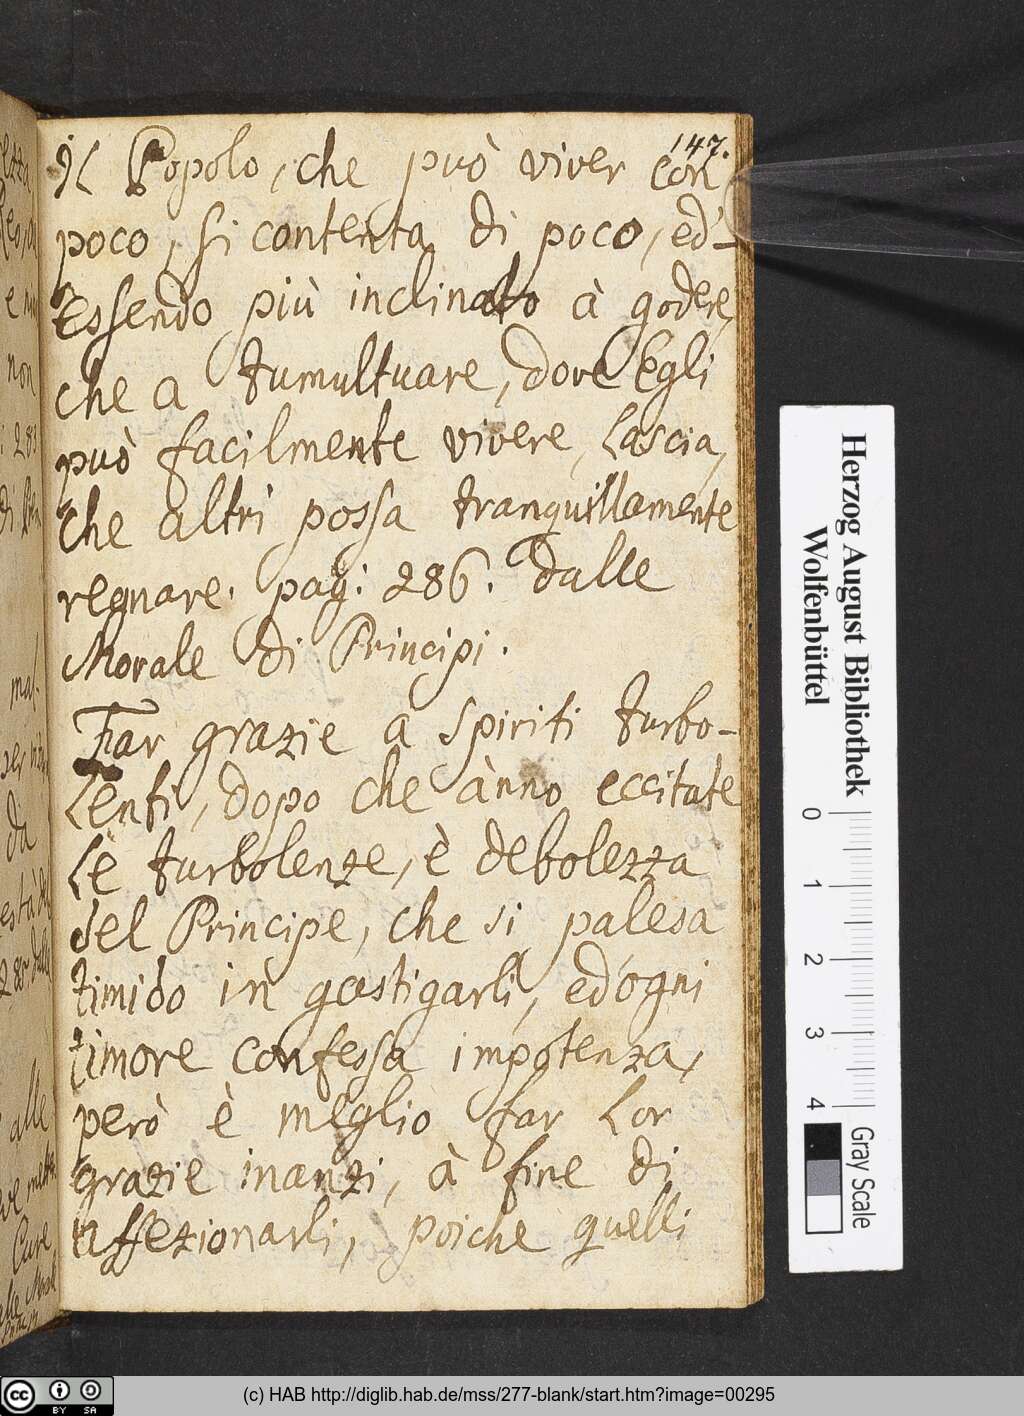 147.
Il Popolo, che può viver con
poco, si contenta di poco, ed'-
Essendo più inclinato à godere,
che a tumultuare, dove Egli
può facilmente vivere, Lascia,
che altri possa tranquillamente
regnare. pag: 286. dalle
Morale di Principi.
Far grazie a spiriti turbo-
Lenti, dopo che ànno eccitate
Le turbolenze, è debolezza
del Principe, che si palesa
timido in gastigarli, ed'ogni
timore confessa impotenza,
però è meglio far Lor
grazie inanzi, à fine di
affezionarli, poiche quelli
non
da
alle
Herzog August Bibliothek
Wolfenbüttel
0 1 2 3 4
Gray Scale
cc BY SA
(c) HAB http://diglib.hab.de/mss/277-blank/start.htm?image=00295